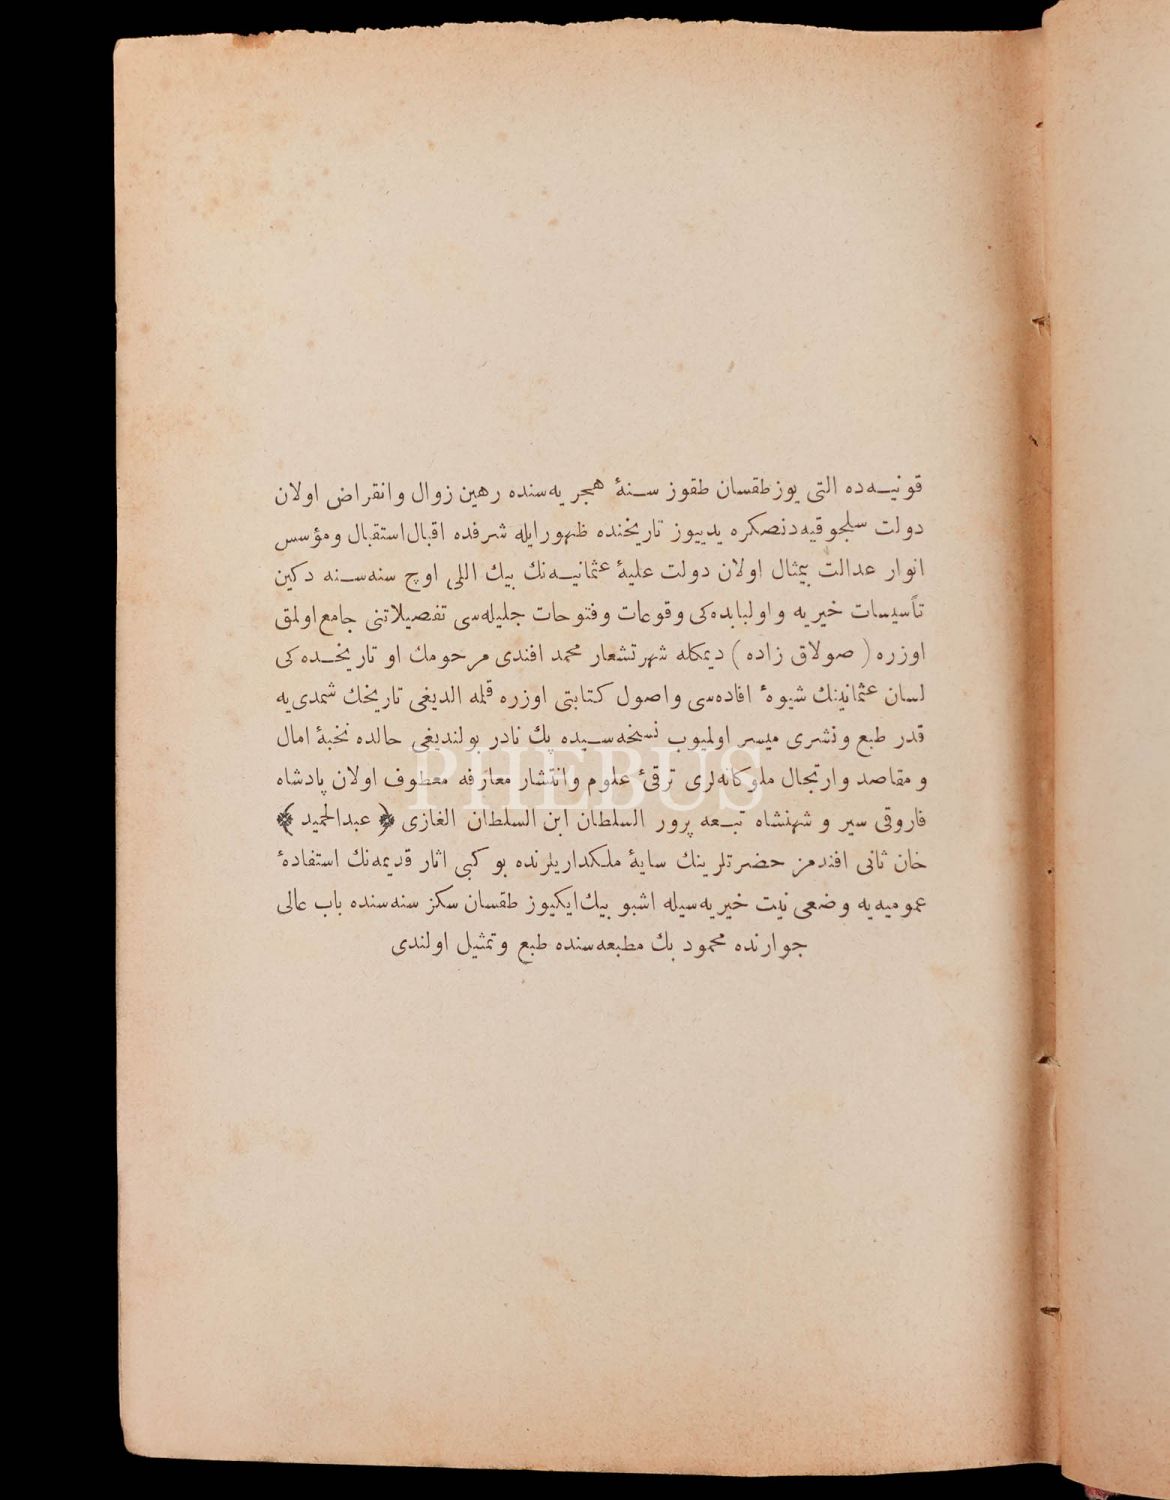 قونیـه‌ده التی یوز طقسان طقوز سـنهٔ هجریه‌سنده رهین زوال وانقراض اولان
دولت سلجوقیه‌دنصکره یدییوز تاریخنده ظهور ایله شرفده اقبال استقبال ومؤسس
انوار عدالت بیمثال اولان دولت علیهٔ عثمانیـه‌نك بیك اللی اوچ سنه‌سـنه دکین
تأسیسات خیریه و اولبابده‌کی وقوعات وفتوحات جلیله‌سی تفصیلاتنی جامع اولمق
اوزره ( صولاق زاده ) دیمکله شهرتشعار محمد افندی مرحومك او تاریخـده‌کی
لسان عثمانینك شیوهٔ افاده‌سی واصول کتابتی اوزره قلمه الدیغی تاریخك شمدی‌یه
قدر طبع ونشری میسر اولمیوب نسخه‌سـیده پك نادر بولندیغی حالده نخبهٔ امال
و مقاصد وارتجال ملوکانه‌لری ترقیٔ علوم وانتشار معارفه معطوف اولان پادشاه
فاروقی سیر و شهنشاه تبـعه پرور السلطان ابن السلطان الغازی ﴿ عبدالحمید ﴾
خان ثانی افندمز حضرتلرینك سایهٔ ملکداریلرنده بو کبی اثار قدیمه‌نك استفادهٔ
عمومیه‌یه وضعی نیت خیریه‌سیله اشبو بیك ایکیوز طقسان سکز سنه‌سنده باب عالی
جوارنده محمود بك مطبعه‌سنده طبع وتمثیل اولندی
PHEBUS